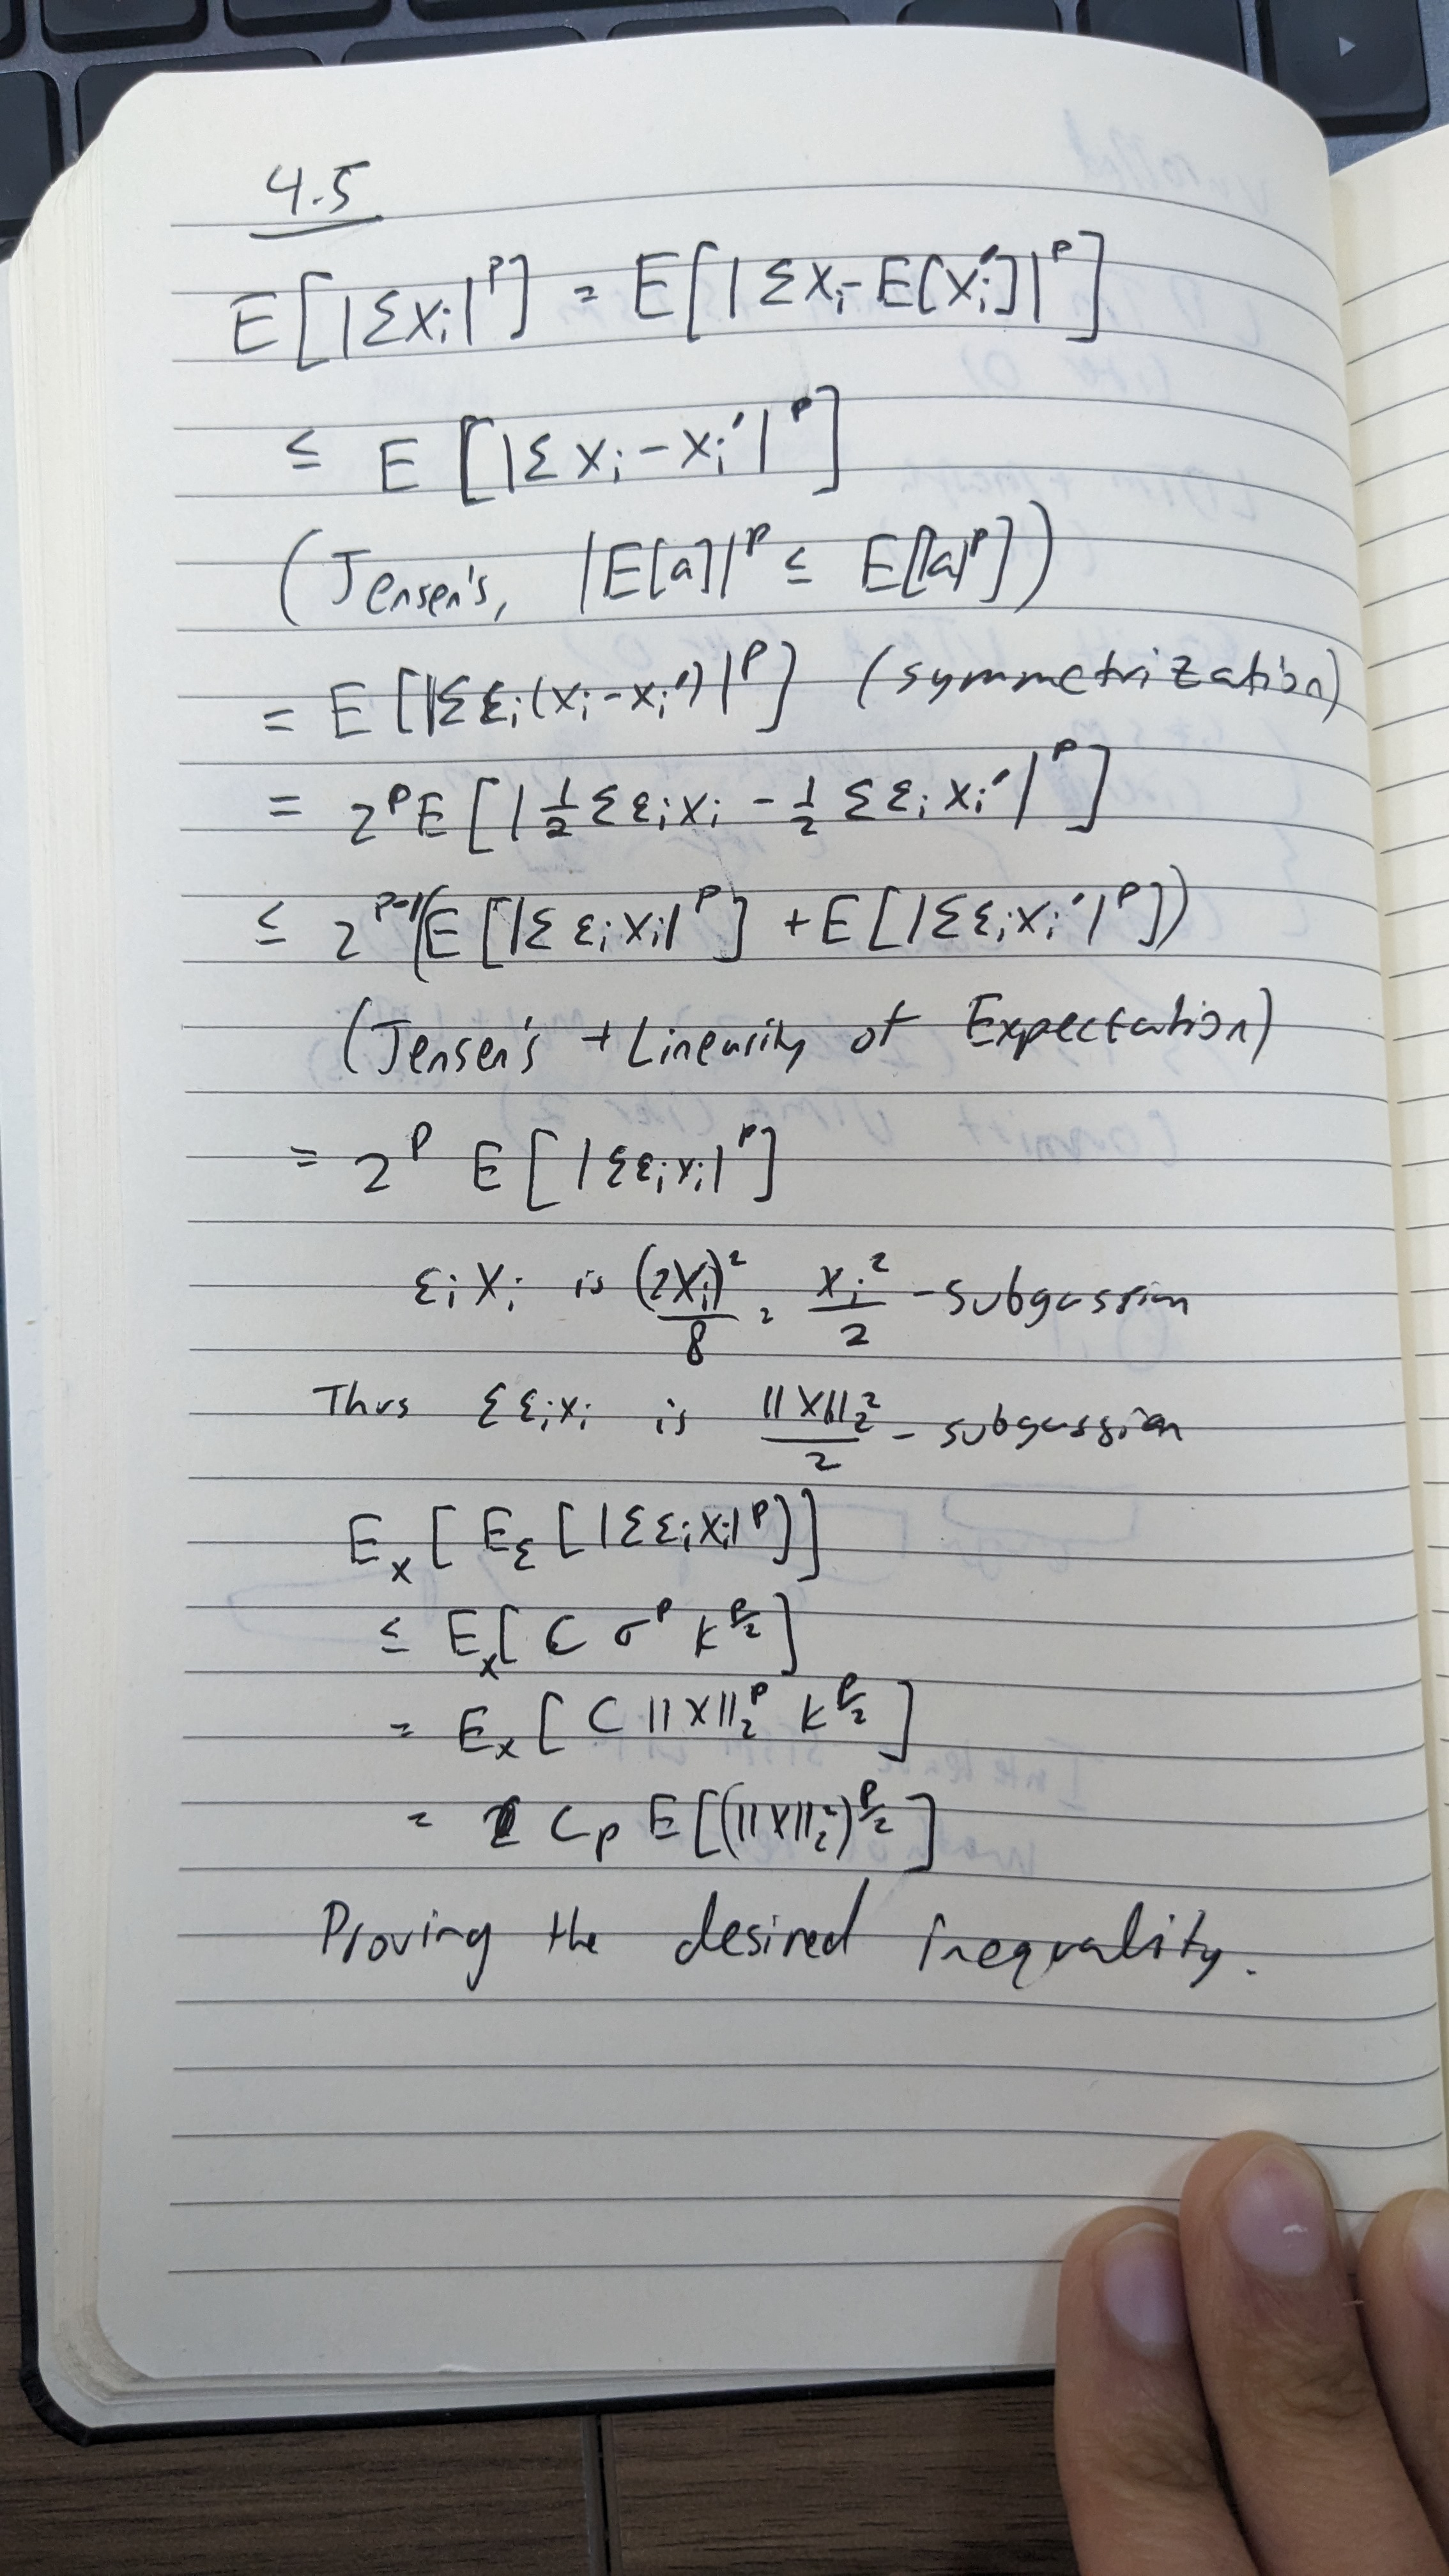 4.5
E[|Σxᵢ|ᵖ] = E[|Σxᵢ-E[xᵢ']|ᵖ]
≤ E[|Σxᵢ-xᵢ'|ᵖ]
(Jensen's, |E[a]|ᵖ ≤ E[|a|ᵖ])
= E[|Σεᵢ(xᵢ-xᵢ')|ᵖ] (symmetrization)
= 2ᵖE[|½Σεᵢxᵢ - ½Σεᵢxᵢ'|ᵖ]
≤ 2ᵖ⁻¹(E[|Σεᵢxᵢ|ᵖ] + E[|Σεᵢxᵢ'|ᵖ])
(Jensen's + Linearity of Expectation)
= 2ᵖ E[|Σεᵢxᵢ|ᵖ]
εᵢxᵢ is (2xᵢ)²/8 = xᵢ²/2 -subgassian
Thus Σεᵢxᵢ is ||x||₂²/2 - subgassian
Eₓ[E_ε[|Σεᵢxᵢ|ᵖ]]
≤ Eₓ[C σᵖ k^(p/2)]
= Eₓ[C ||x||₂ᵖ k^(p/2)]
= Cₚ E[(||x||₂²)^(p/2)]
Proving the desired inequality.